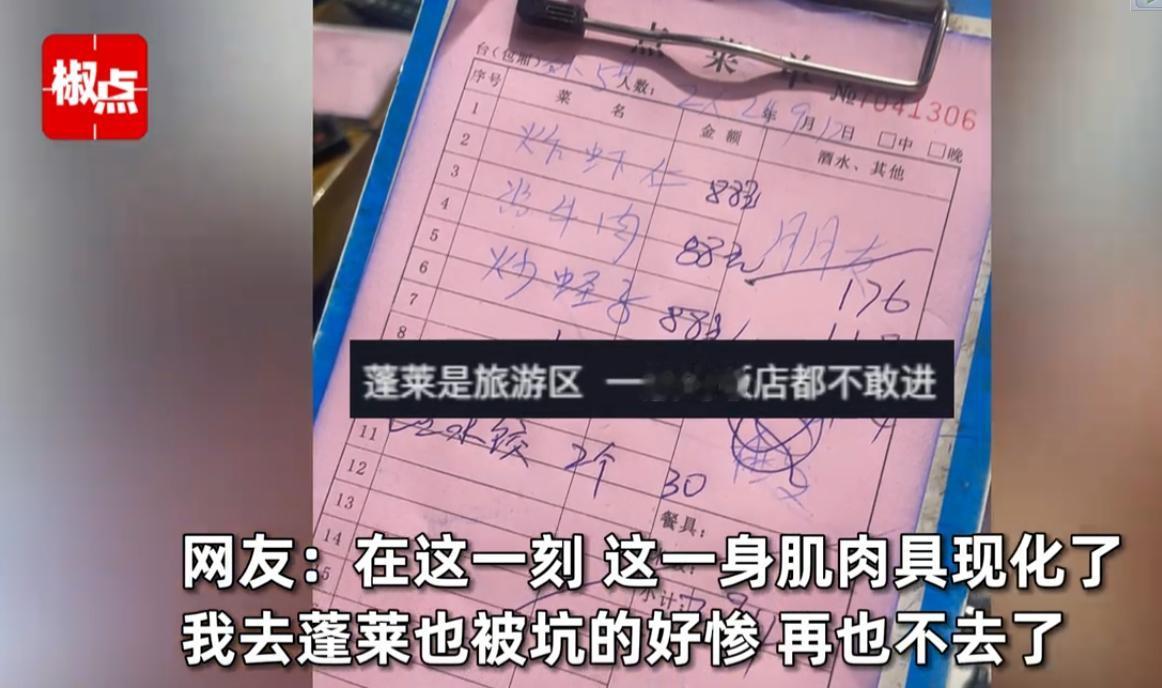 椒点
点菜单
台(包厢) 人数: 年9月12日 □中 □晚
№7041306
序号 菜名 金额 酒水、其他
1
2 炸虾仁 88元
3
4 牛肉 88元 朋友
5 176
6 炒蛏子 88元
7
8
蓬莱是旅游区 一 店都不敢进
11 水饺 2个 30
12
13 餐具:
14
小计:
网友：在这一刻 这一身肌肉具现化了
我去蓬莱也被坑的好惨 再也不去了